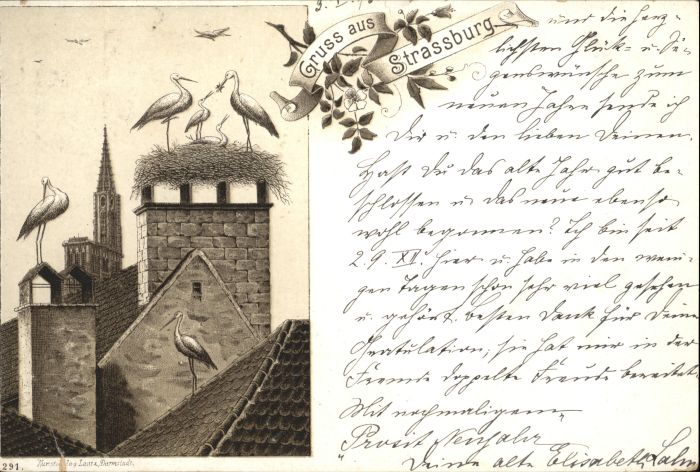 Gruss aus
Strassburg
und die herz-
lichsten Glück- u. Se-
genswünsche zum
neuen Jahre sende ich
Dir u. den lieben Deinen.
Hast Du das alte Jahr gut be-
schlossen u. das neue ebenso
wohl begonnen? Ich bin seit
29. XII. hier u. habe in den weni-
gen Tagen schon sehr viel gesehen
u. gehört. Besten Dank für Deine
Gratulation, sie hat mir in der
Fremde doppelte Freude bereitet.
Mit nochmaligem
"Prosit Neujahr"
Deine alte Elisabeth
291.